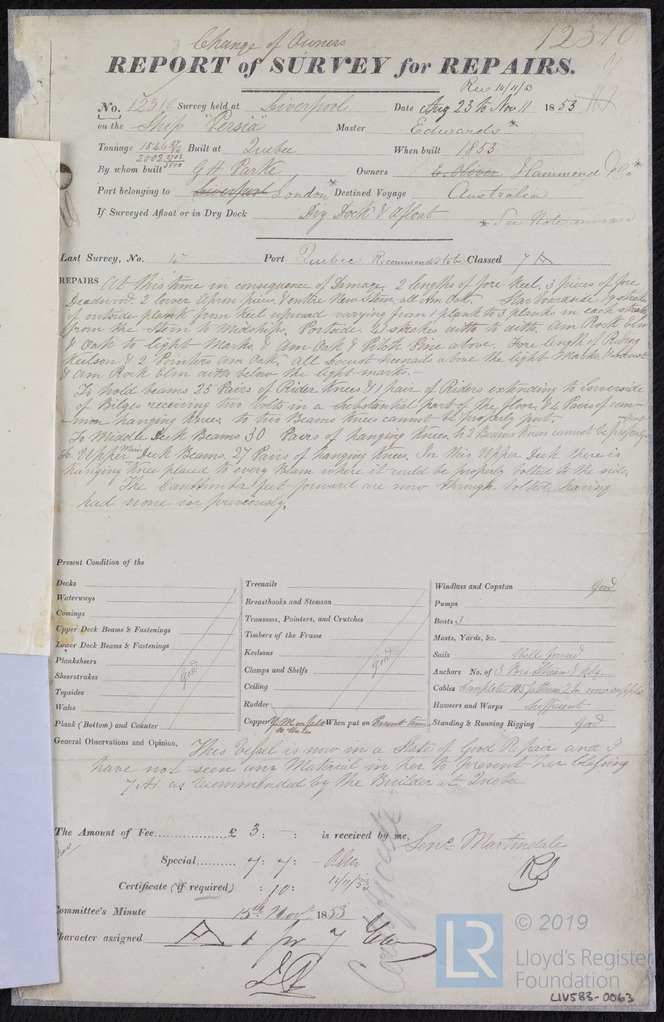 12310
Change of Owners
REPORT of SURVEY for REPAIRS.
Rec 14/11/53
No. 12310 Survey held at Liverpool Date Aug 23 to Nov 11 1853
on the Ship "Persia" Master Edwards *
Tonnage 1546 Built at Quebec When built 1853
2002
By whom built G H Parke Owners E. Oliver Hammond & Co *
Port belonging to Liverpool London * Destined Voyage Australia
If Surveyed Afloat or in Dry Dock Dry Dock & afloat * See Note annexed
Last Survey, No. Port Quebec Recommended to be Classed 7 A
REPAIRS At this time in consequence of Damage, 2 lengths of fore keel. 3 pieces of fore
Deadwood 2 lower apron piece & entire New Stem, all Am Oak. Starboardside 19 strakes
of outside plank from keel upward varying from 1 plank to 3 planks in each strake
from the Stem to Midships. Portside 2 strakes ditto to ditto. Am Rock Elm
& Oak to light Marks, & Am Oak & Pitch Pine above. Fore length of Riding
Keelson & 2 Pointers Am Oak. All Locust treenails above the light Marks & Locust
& Am Rock Elm ditto below the light marks.
To hold beams 25 Pairs of Rider knees & 1 pair of Riders extending to lowerside
of Bilges receiving two bolts in a substantial part of the floor, & 4 Pairs of com-
mon hanging knees, to two Beams knees cannot be properly put.
To Middle Deck Beams 30 Pairs of hanging knees, to 2 Beams knees cannot be properly put
To Upper Main Deck Beams, 27 Pairs of hanging knees. In this Upper Deck there is
hanging knee placed to every Beam where it could be properly bolted to the side.
The Canttimber feet forward are now through bolted having
had none in previously.
Present Condition of the
Decks
Waterways
Comings
Upper Deck Beams & Fastenings
Lower Deck Beams & Fastenings
Planksheers
Sheerstrakes
Topsides
Wales
Plank (Bottom) and Counter
Good
Treenails
Breasthooks and Stemson
Transoms, Pointers, and Crutches
Timbers of the Frame
Keelsons
Clamps and Shelfs
Ceiling
Rudder
Good
Copper Y.M. on felt When put on Present time
Windlass and Capstan Good
Pumps
Boats 3
Masts, Yards, &c.
Sails Well found
Anchors No. of 3 Bro. Stream & Kdg.
Cables Complete
Hawsers and Warps Sufficient
Standing & Running Rigging Good
General Observations and Opinion, This Vessel is now in a State of Good Repair and I
have not seen any Material in her to prevent her Classing
7 A1 as recommended by the Builder at Quebec
The Amount of Fee £ 3 : - : is received by me,
Jno. Martindale
Special 7 : 7 : -
Certificate (if required) : 10 : 14/11/53
RS
Committee's Minute 15th Novr 1853
Character assigned A 1 for 7 Years
© 2019
LR
Lloyd's Register
Foundation
LIV583-0063